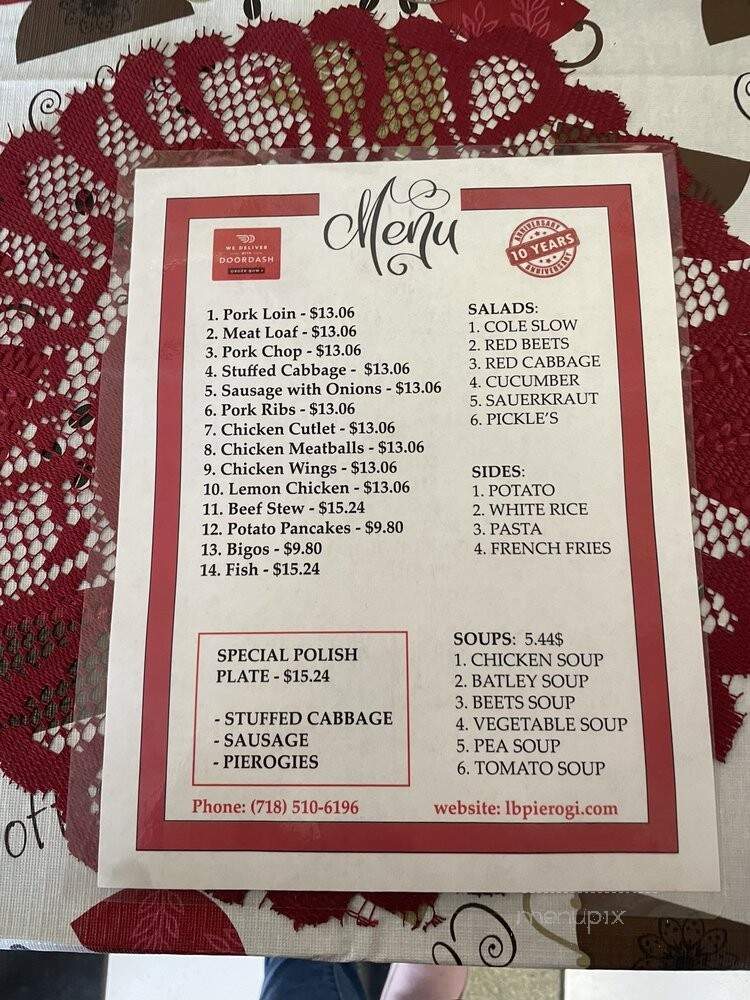 Menu
WE DELIVER
WITH
DOORDASH
ORDER NOW
ANNIVERSARY
10 YEARS
ANNIVERSARY
1. Pork Loin - $13.06
2. Meat Loaf - $13.06
3. Pork Chop - $13.06
4. Stuffed Cabbage - $13.06
5. Sausage with Onions - $13.06
6. Pork Ribs - $13.06
7. Chicken Cutlet - $13.06
8. Chicken Meatballs - $13.06
9. Chicken Wings - $13.06
10. Lemon Chicken - $13.06
11. Beef Stew - $15.24
12. Potato Pancakes - $9.80
13. Bigos - $9.80
14. Fish - $15.24
SALADS:
1. COLE SLOW
2. RED BEETS
3. RED CABBAGE
4. CUCUMBER
5. SAUERKRAUT
6. PICKLE'S
SIDES:
1. POTATO
2. WHITE RICE
3. PASTA
4. FRENCH FRIES
SPECIAL POLISH
PLATE - $15.24
- STUFFED CABBAGE
- SAUSAGE
- PIEROGIES
SOUPS: 5.44$
1. CHICKEN SOUP
2. BATLEY SOUP
3. BEETS SOUP
4. VEGETABLE SOUP
5. PEA SOUP
6. TOMATO SOUP
Phone: (718) 510-6196
website: lbpierogi.com
menupix